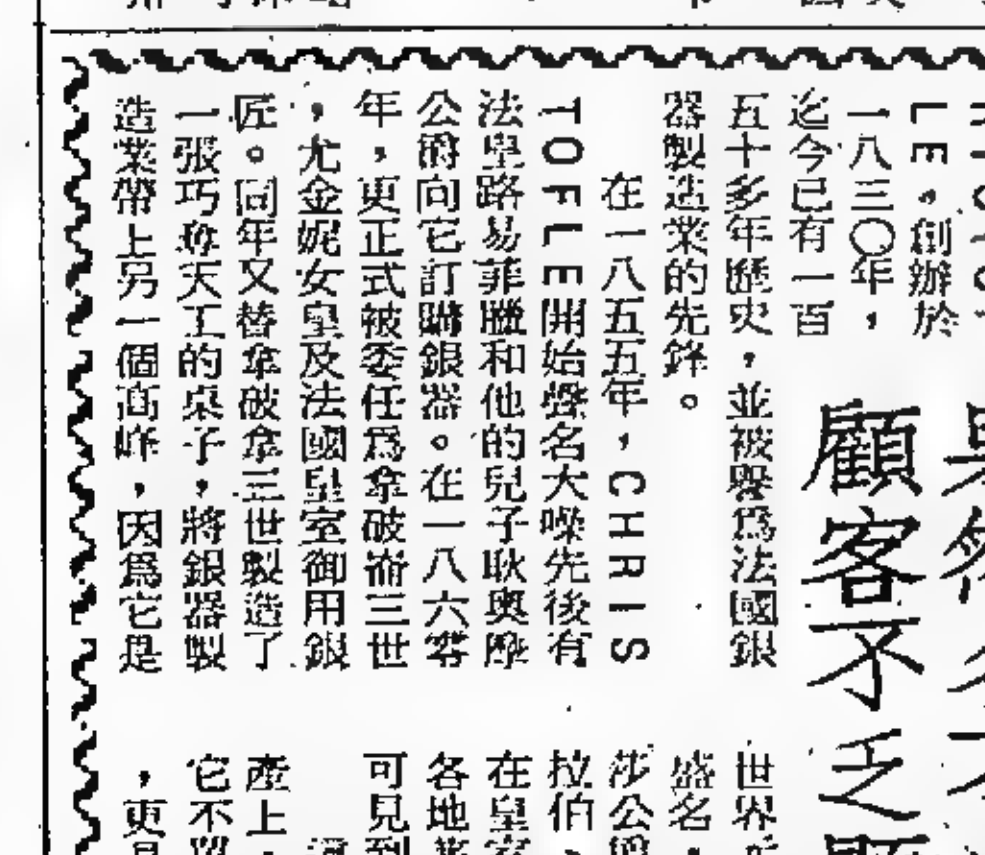 LE，創辦於
一八三〇年，
迄今已有一百
五十多年歷史，並被譽爲法國銀
器製造業的先鋒。
在一八五五年，CHRIS
TOFLE開始聲名大噪先後有
法皇路易菲臘和他的兒子耿奧
公爵向它訂購銀器。在一八六零
年，更正式被委任爲拿破崙三世
，尤金妮女皇及法國皇室御用銀
匠。同年又替拿破拿三世製造了
一張巧奪天工的桌子，將銀器製
造業帶上另一個高峰，因爲它是
顧客不乏
世界
盛名，
莎公
拉伯，
在皇室
各地
可見到
產上，
它不單
，更